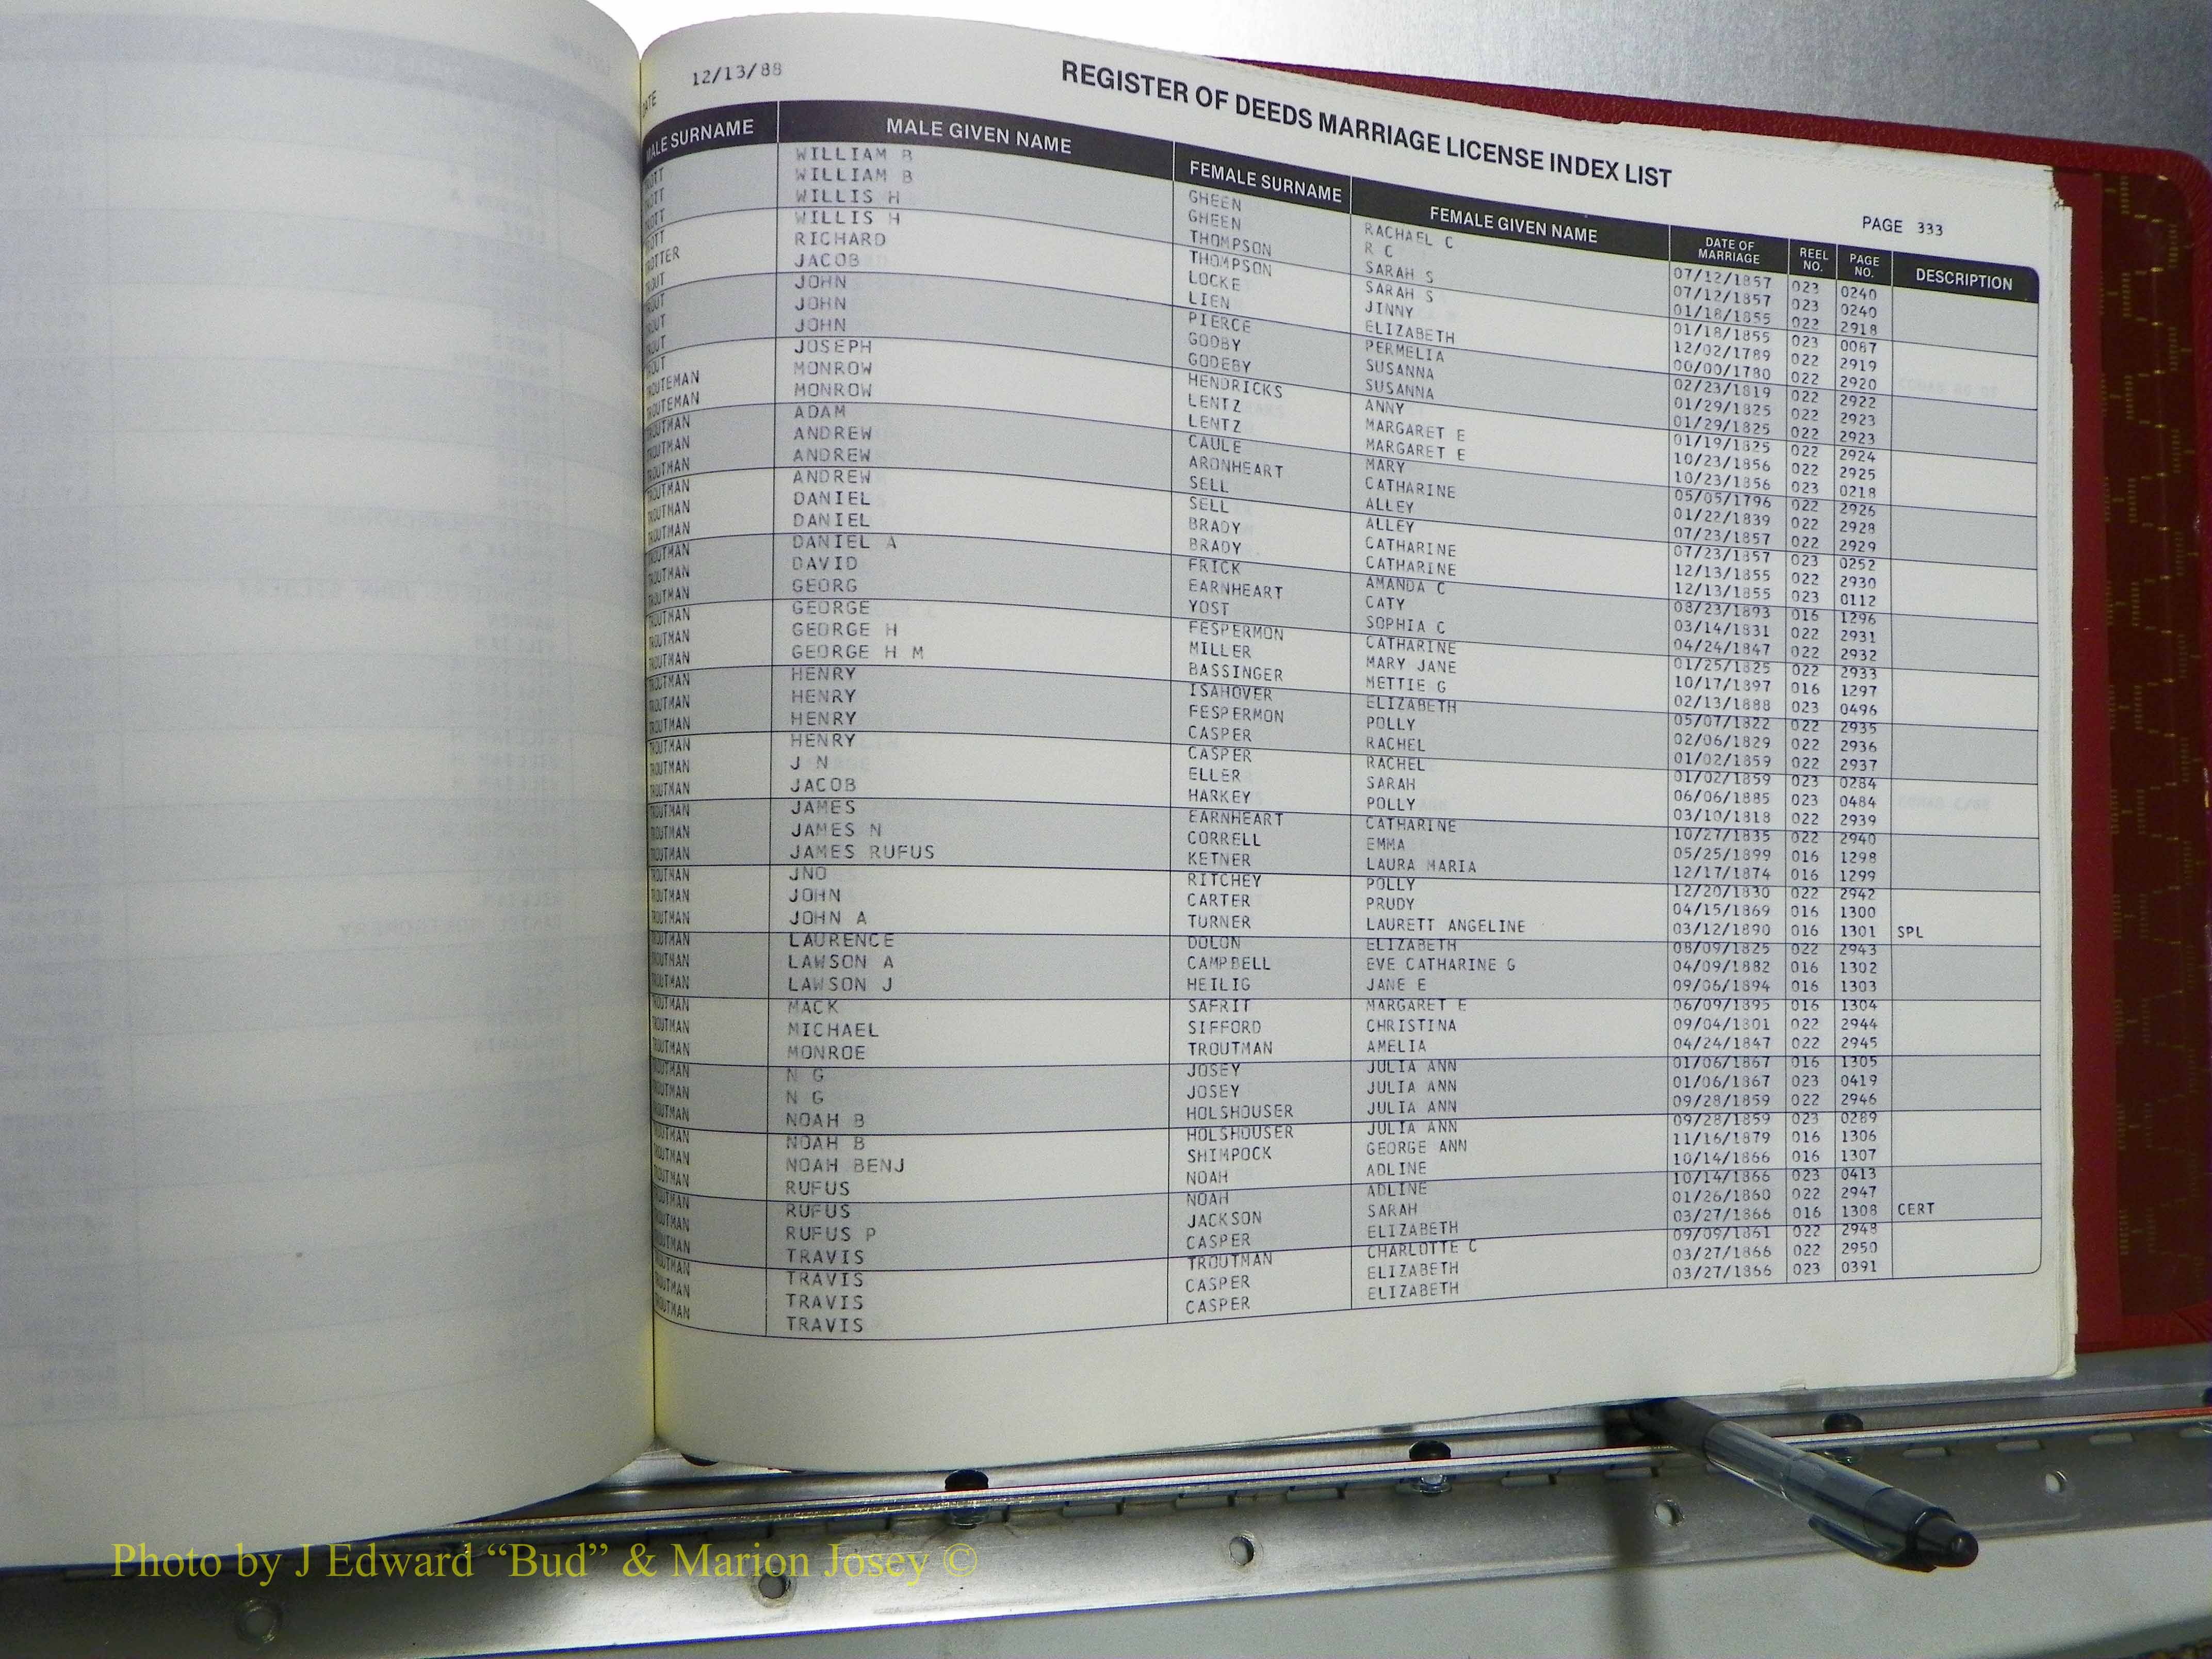 DATE 12/13/88
REGISTER OF DEEDS MARRIAGE LICENSE INDEX LIST
PAGE 333
MALE SURNAME MALE GIVEN NAME FEMALE SURNAME FEMALE GIVEN NAME DATE OF MARRIAGE REEL NO. PAGE NO. DESCRIPTION
TROTT WILLIAM B GHEEN RACHAEL C 07/12/1857 023 0240
TROTT WILLIAM B GHEEN R C 07/12/1857 023 0240
TROTT WILLIS H THOMPSON SARAH S 01/18/1855 022 2918
TROTT WILLIS H THOMPSON SARAH S 01/18/1855 023 0087
TROTTER RICHARD LOCKE JINNY 12/02/1789 022 2919
TROUT JACOB LIEN ELIZABETH 00/00/1780 022 2920
TROUT JOHN PIERCE PERMELIA 02/23/1819 022 2922
TROUT JOHN GOOBY SUSANNA 01/29/1825 022 2923
TROUT JOHN GODEBY SUSANNA 01/29/1825 022 2923
TROUT JOSEPH HENDRICKS ANNY 01/19/1825 022 2924
TROUTEMAN MONROW LENTZ MARGARET E 10/23/1856 022 2925
TROUTEMAN MONROW LENTZ MARGARET E 10/23/1856 023 0218
TROUTMAN ADAM CAULE MARY 05/05/1796 022 2926
TROUTMAN ANDREW ARONHEART CATHARINE 01/22/1839 022 2928
TROUTMAN ANDREW SELL ALLEY 07/23/1857 022 2929
TROUTMAN ANDREW SELL ALLEY 07/23/1857 023 0252
TROUTMAN DANIEL BRADY CATHARINE 12/13/1855 022 2930
TROUTMAN DANIEL BRADY CATHARINE 12/13/1855 023 0112
TROUTMAN DANIEL A FRICK AMANDA C 08/23/1893 016 1296
TROUTMAN DAVID EARNHEART CATY 03/14/1831 022 2931
TROUTMAN GEORG YOST SOPHIA C 04/24/1847 022 2932
TROUTMAN GEORGE FESPERMON CATHARINE 01/25/1825 022 2933
TROUTMAN GEORGE H MILLER MARY JANE 10/17/1897 016 1297
TROUTMAN GEORGE H M BASSINGER METTIE G 02/13/1888 023 0496
TROUTMAN HENRY ISAHOVER ELIZABETH 05/07/1822 022 2935
TROUTMAN HENRY FESPERMON POLLY 02/06/1829 022 2936
TROUTMAN HENRY CASPER RACHEL 01/02/1859 022 2937
TROUTMAN HENRY CASPER RACHEL 01/02/1859 023 0284
TROUTMAN J N ELLER SARAH 06/06/1885 023 0484
TROUTMAN JACOB HARKEY POLLY 03/10/1818 022 2939
TROUTMAN JAMES EARNHEART CATHARINE 10/27/1835 022 2940
TROUTMAN JAMES N CORRELL EMMA 05/25/1899 016 1298
TROUTMAN JAMES RUFUS KETNER LAURA MARIA 12/17/1874 016 1299
TROUTMAN JNO RITCHEY POLLY 12/20/1830 022 2942
TROUTMAN JOHN CARTER PRUDY 04/15/1869 016 1300
TROUTMAN JOHN A TURNER LAURETT ANGELINE 03/12/1890 016 1301 SPL
TROUTMAN LAURENCE DOLON ELIZABETH 08/09/1825 022 2943
TROUTMAN LAWSON A CAMPBELL EVE CATHARINE G 04/09/1882 016 1302
TROUTMAN LAWSON J HEILIG JANE E 09/06/1894 016 1303
TROUTMAN MACK SAFRIT MARGARET E 06/09/1895 016 1304
TROUTMAN MICHAEL SIFFORD CHRISTINA 09/04/1801 022 2944
TROUTMAN MONROE TROUTMAN AMELIA 04/24/1847 022 2945
TROUTMAN N G JOSEY JULIA ANN 01/06/1867 016 1305
TROUTMAN N G JOSEY JULIA ANN 01/06/1867 023 0419
TROUTMAN NOAH B HOLSHOUSER JULIA ANN 09/28/1859 022 2946
TROUTMAN NOAH B HOLSHOUSER JULIA ANN 09/28/1859 023 0289
TROUTMAN NOAH BENJ SHIMPOCK GEORGE ANN 11/16/1879 016 1306
TROUTMAN RUFUS NOAH ADLINE 10/14/1866 016 1307
TROUTMAN RUFUS NOAH ADLINE 10/14/1866 023 0413
TROUTMAN RUFUS P JACKSON SARAH 01/26/1860 022 2947
TROUTMAN TRAVIS CASPER ELIZABETH 03/27/1866 016 1308 CERT
TROUTMAN TRAVIS TROUTMAN CHARLOTTE C 09/09/1861 022 2948
TROUTMAN TRAVIS CASPER ELIZABETH 03/27/1866 022 2950
TROUTMAN TRAVIS CASPER ELIZABETH 03/27/1866 023 0391
Photo by J Edward “Bud” & Marion Josey ©